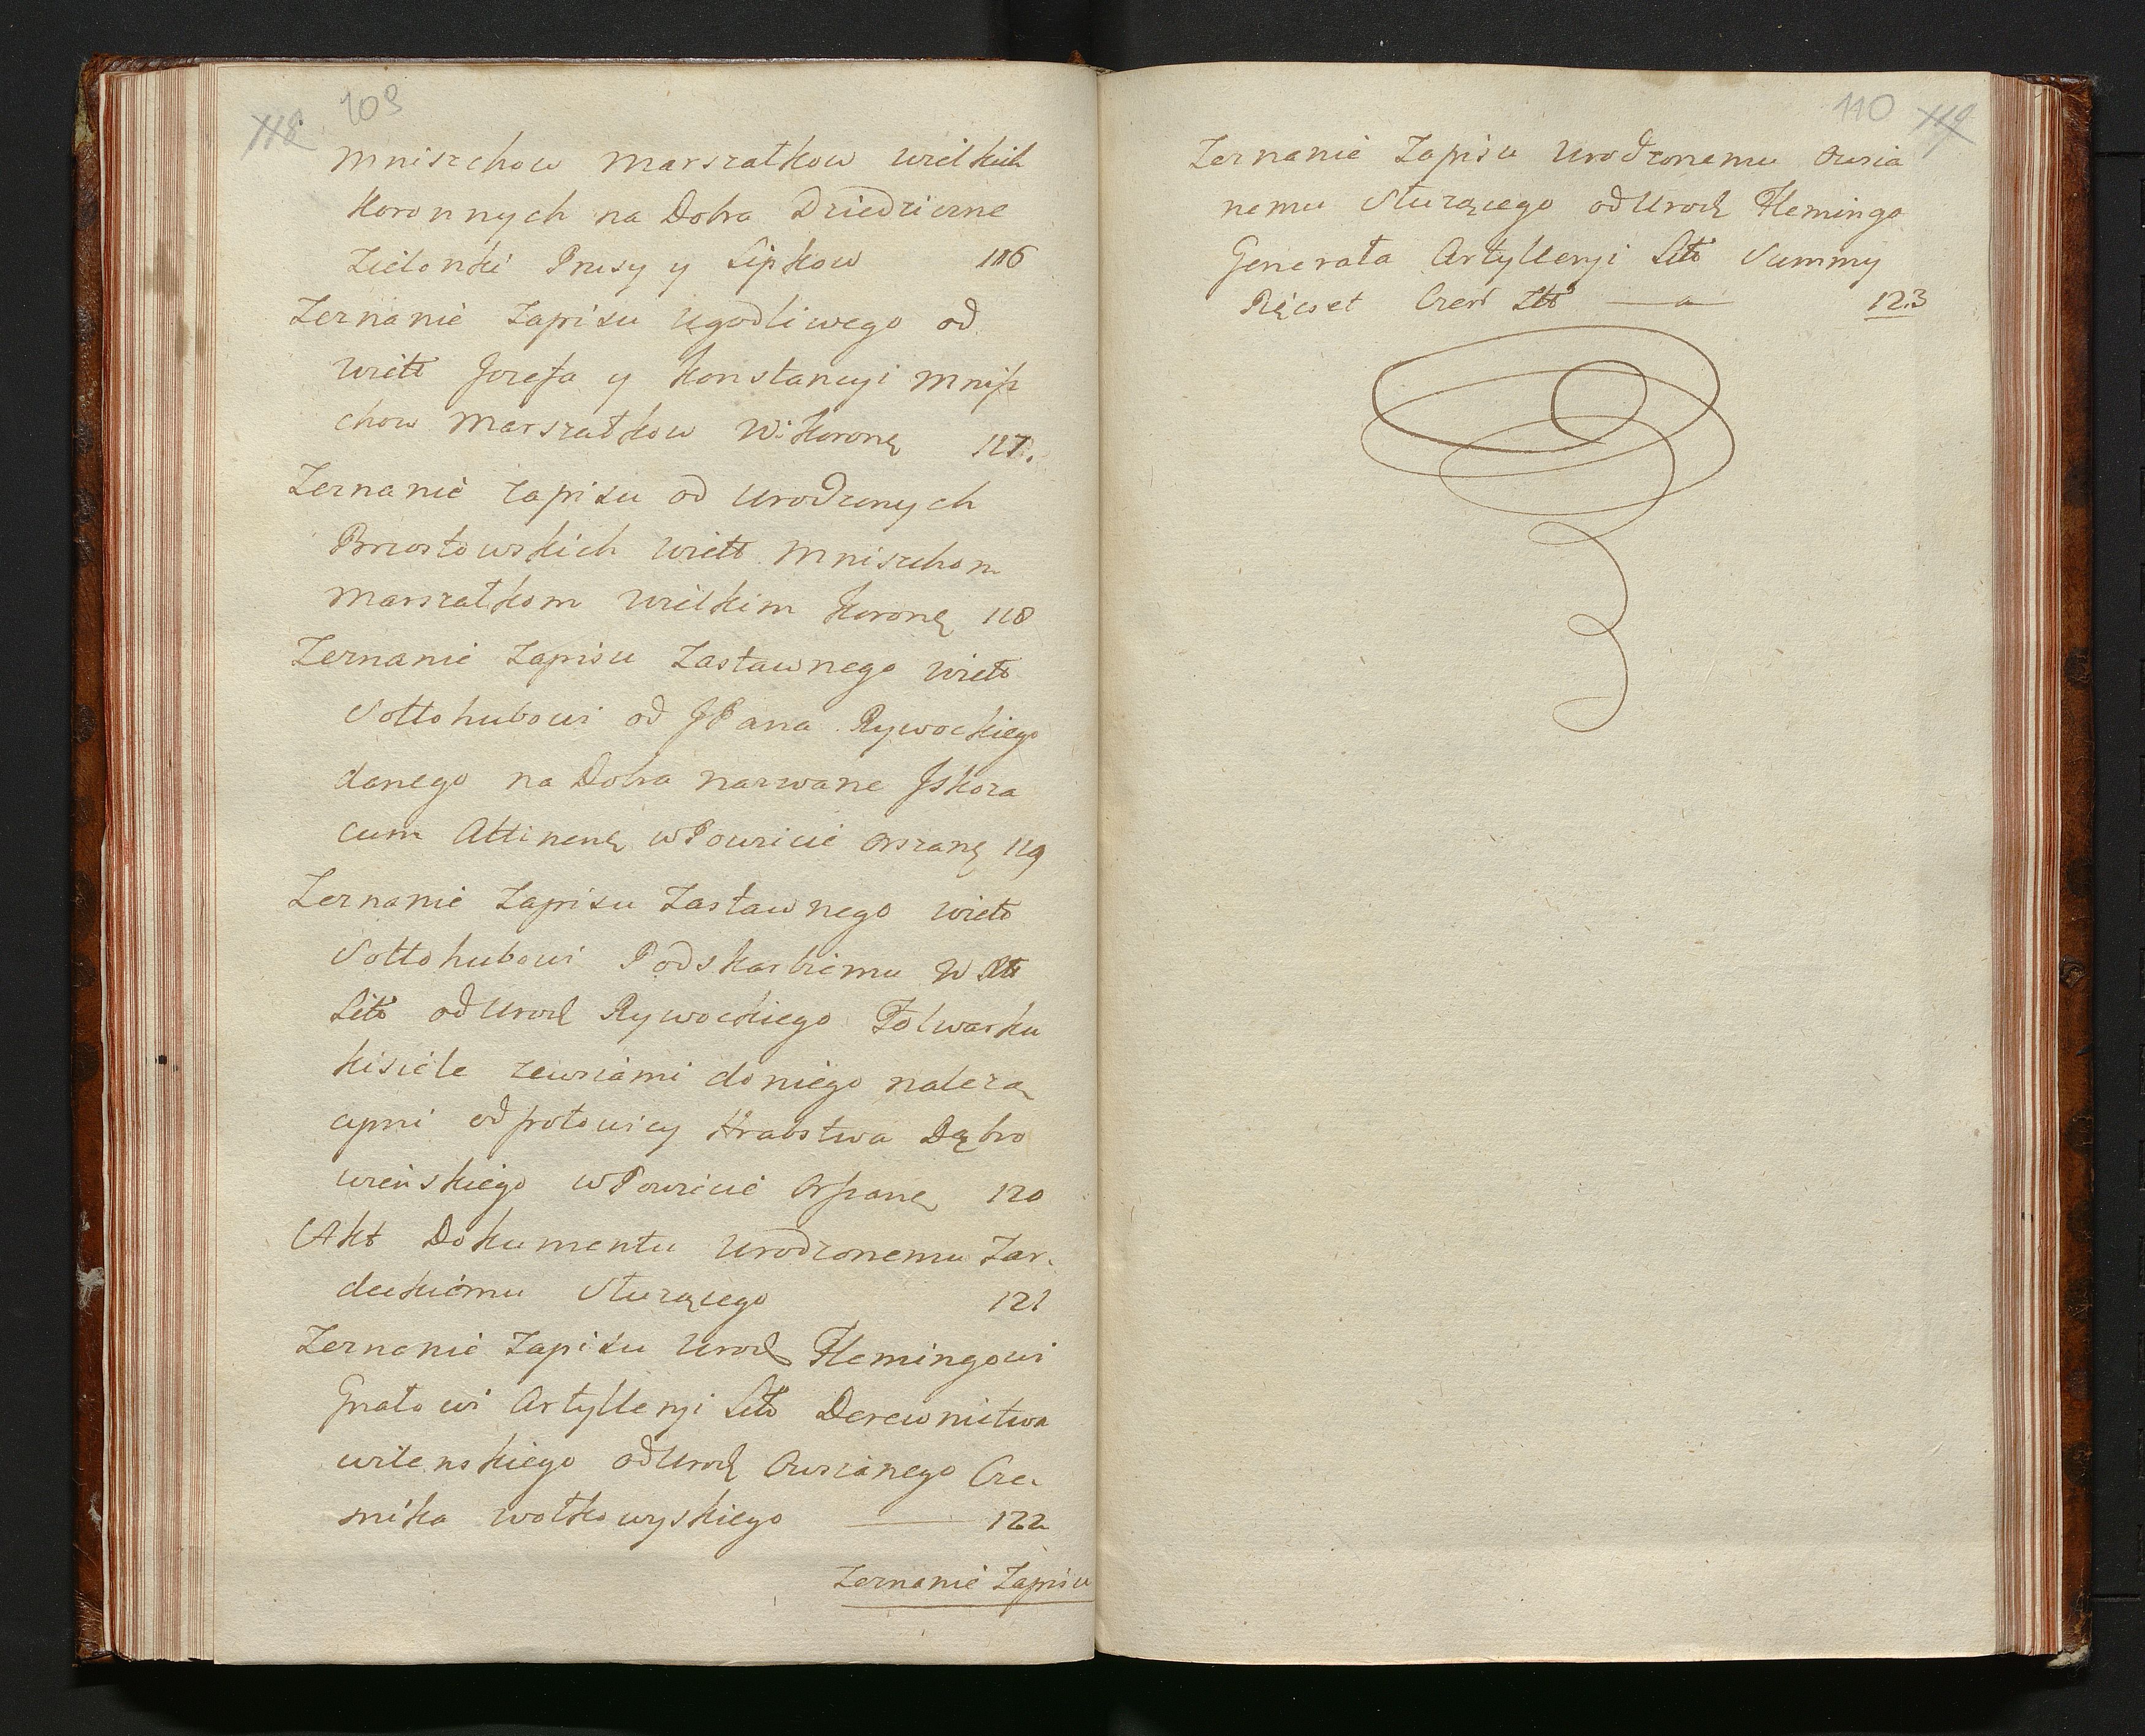 118 109
Mniszchow Marszałkow Wielkich
Koronnych na Dobra Dziedziczne
Zielonki Prusy y Lipkow 116
Zeznanie Zapisu Ugodliwego od
Wiel Jozefa y Konstancyi Mnisz
chow Marszałkow W. Koronę 117.
Zeznanie zapisu od Urodzonych
Brzostowskich Wiel Mniszchom
Marszałkom Wielkim Koronę 118
Zeznanie Zapisu Zastawnego Wiel
Sołłohubowi od JPana Rywockiego
danego na Dobra nazwane Iskoza
cum Attinenę w Powiecie Orszanę 119
Zeznanie Zapisu Zastawnego Wiel
Sołłohubowi Podskarbiemu W
Litt od Urod Rywockiego Folwarku
Kisiele zewsiami do niego należą
cymi od połowicy Hrabstwa Dąbro
wieńskiego w Powiecie Orszanę 120
Akt Dokumentu Urodzonemu Zar
deckiemu Służącego 121
Zeznanie Zapisu Urod Flemingowi
Gnałowi Artylleryi Litt Derewnictwa
wilenskiego od Urod Owsianego Cze
snika wołkowyskiego 122
Zeznanie Zapisu
110 119
Zeznanie Zapisu Urodzonemu Owsia
nemu Służącego od Urod Fleminga
Generała Artylleryi Litt Summy
Pięcset Czer Złt 123